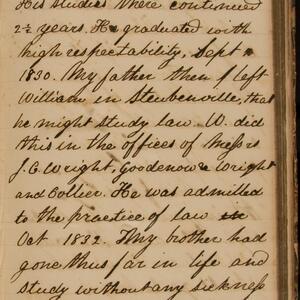 His studies there continued
2½ years. He graduated with
high respectability, Sept
1830. My father then left
William in Steubenville, that
he might study law. W. did
this in the offices of Messrs
J. C. Wright, Goodenow & Wright
and Collier. He was admitted
to the practice of law in
Oct 1832. My brother had
gone thus far in life and
study without any sickness